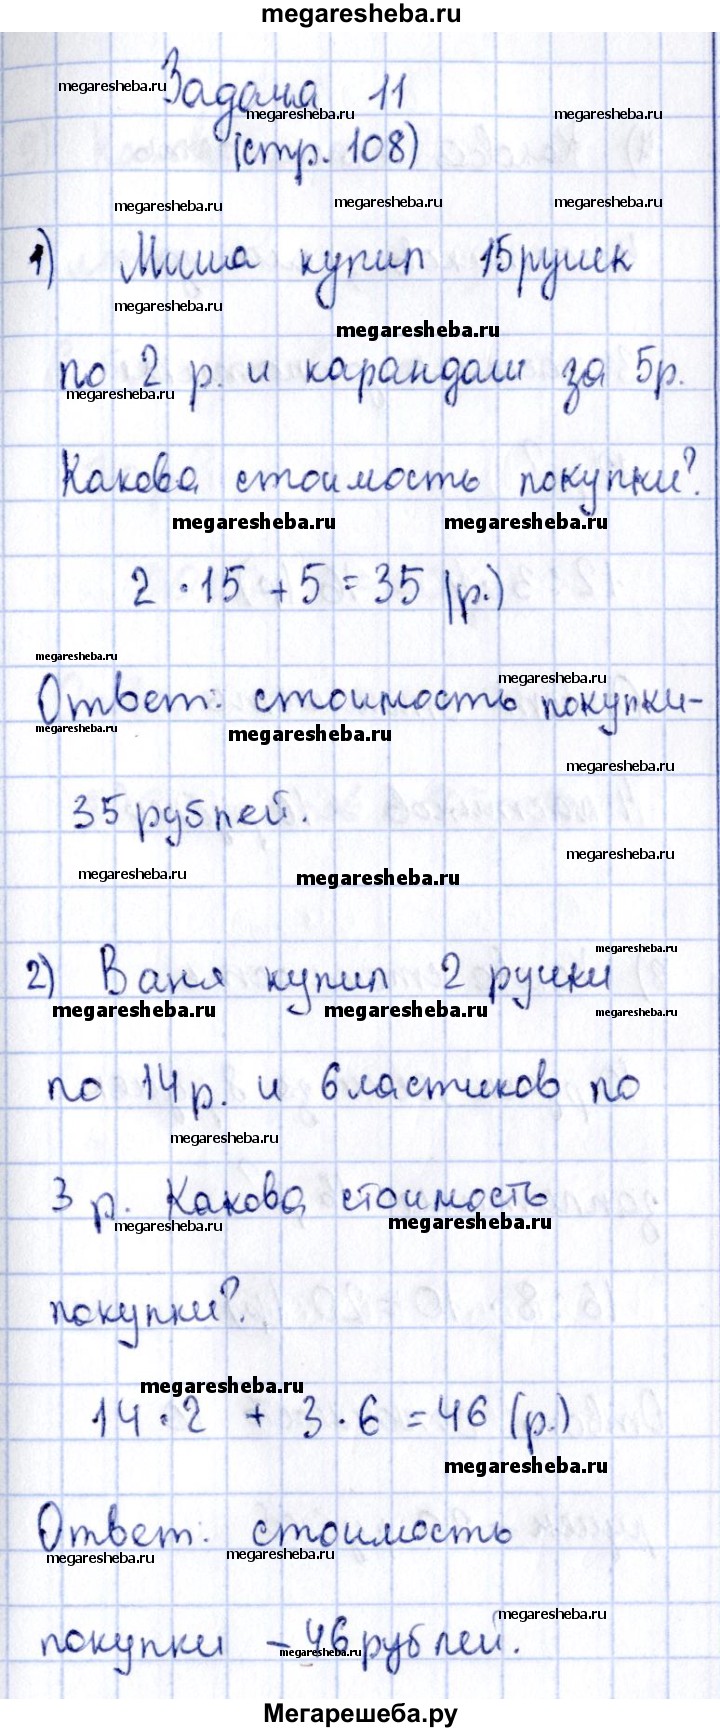 megaresheba.ru
Задача 11
(стр. 108)
1) Миша купил 15 ручек
по 2 р. и карандаш за 5р.
Какова стоимость покупки?
2 · 15 + 5 = 35 (р.)
Ответ: стоимость покупки-
35 рублей.
2) Ваня купил 2 ручки
по 14 р. и 6 ластиков по
3 р. Какова стоимость
покупки?
14 · 2 + 3 · 6 = 46 (р.)
Ответ: стоимость
покупки - 46 рублей.
Мегарешеба.ру